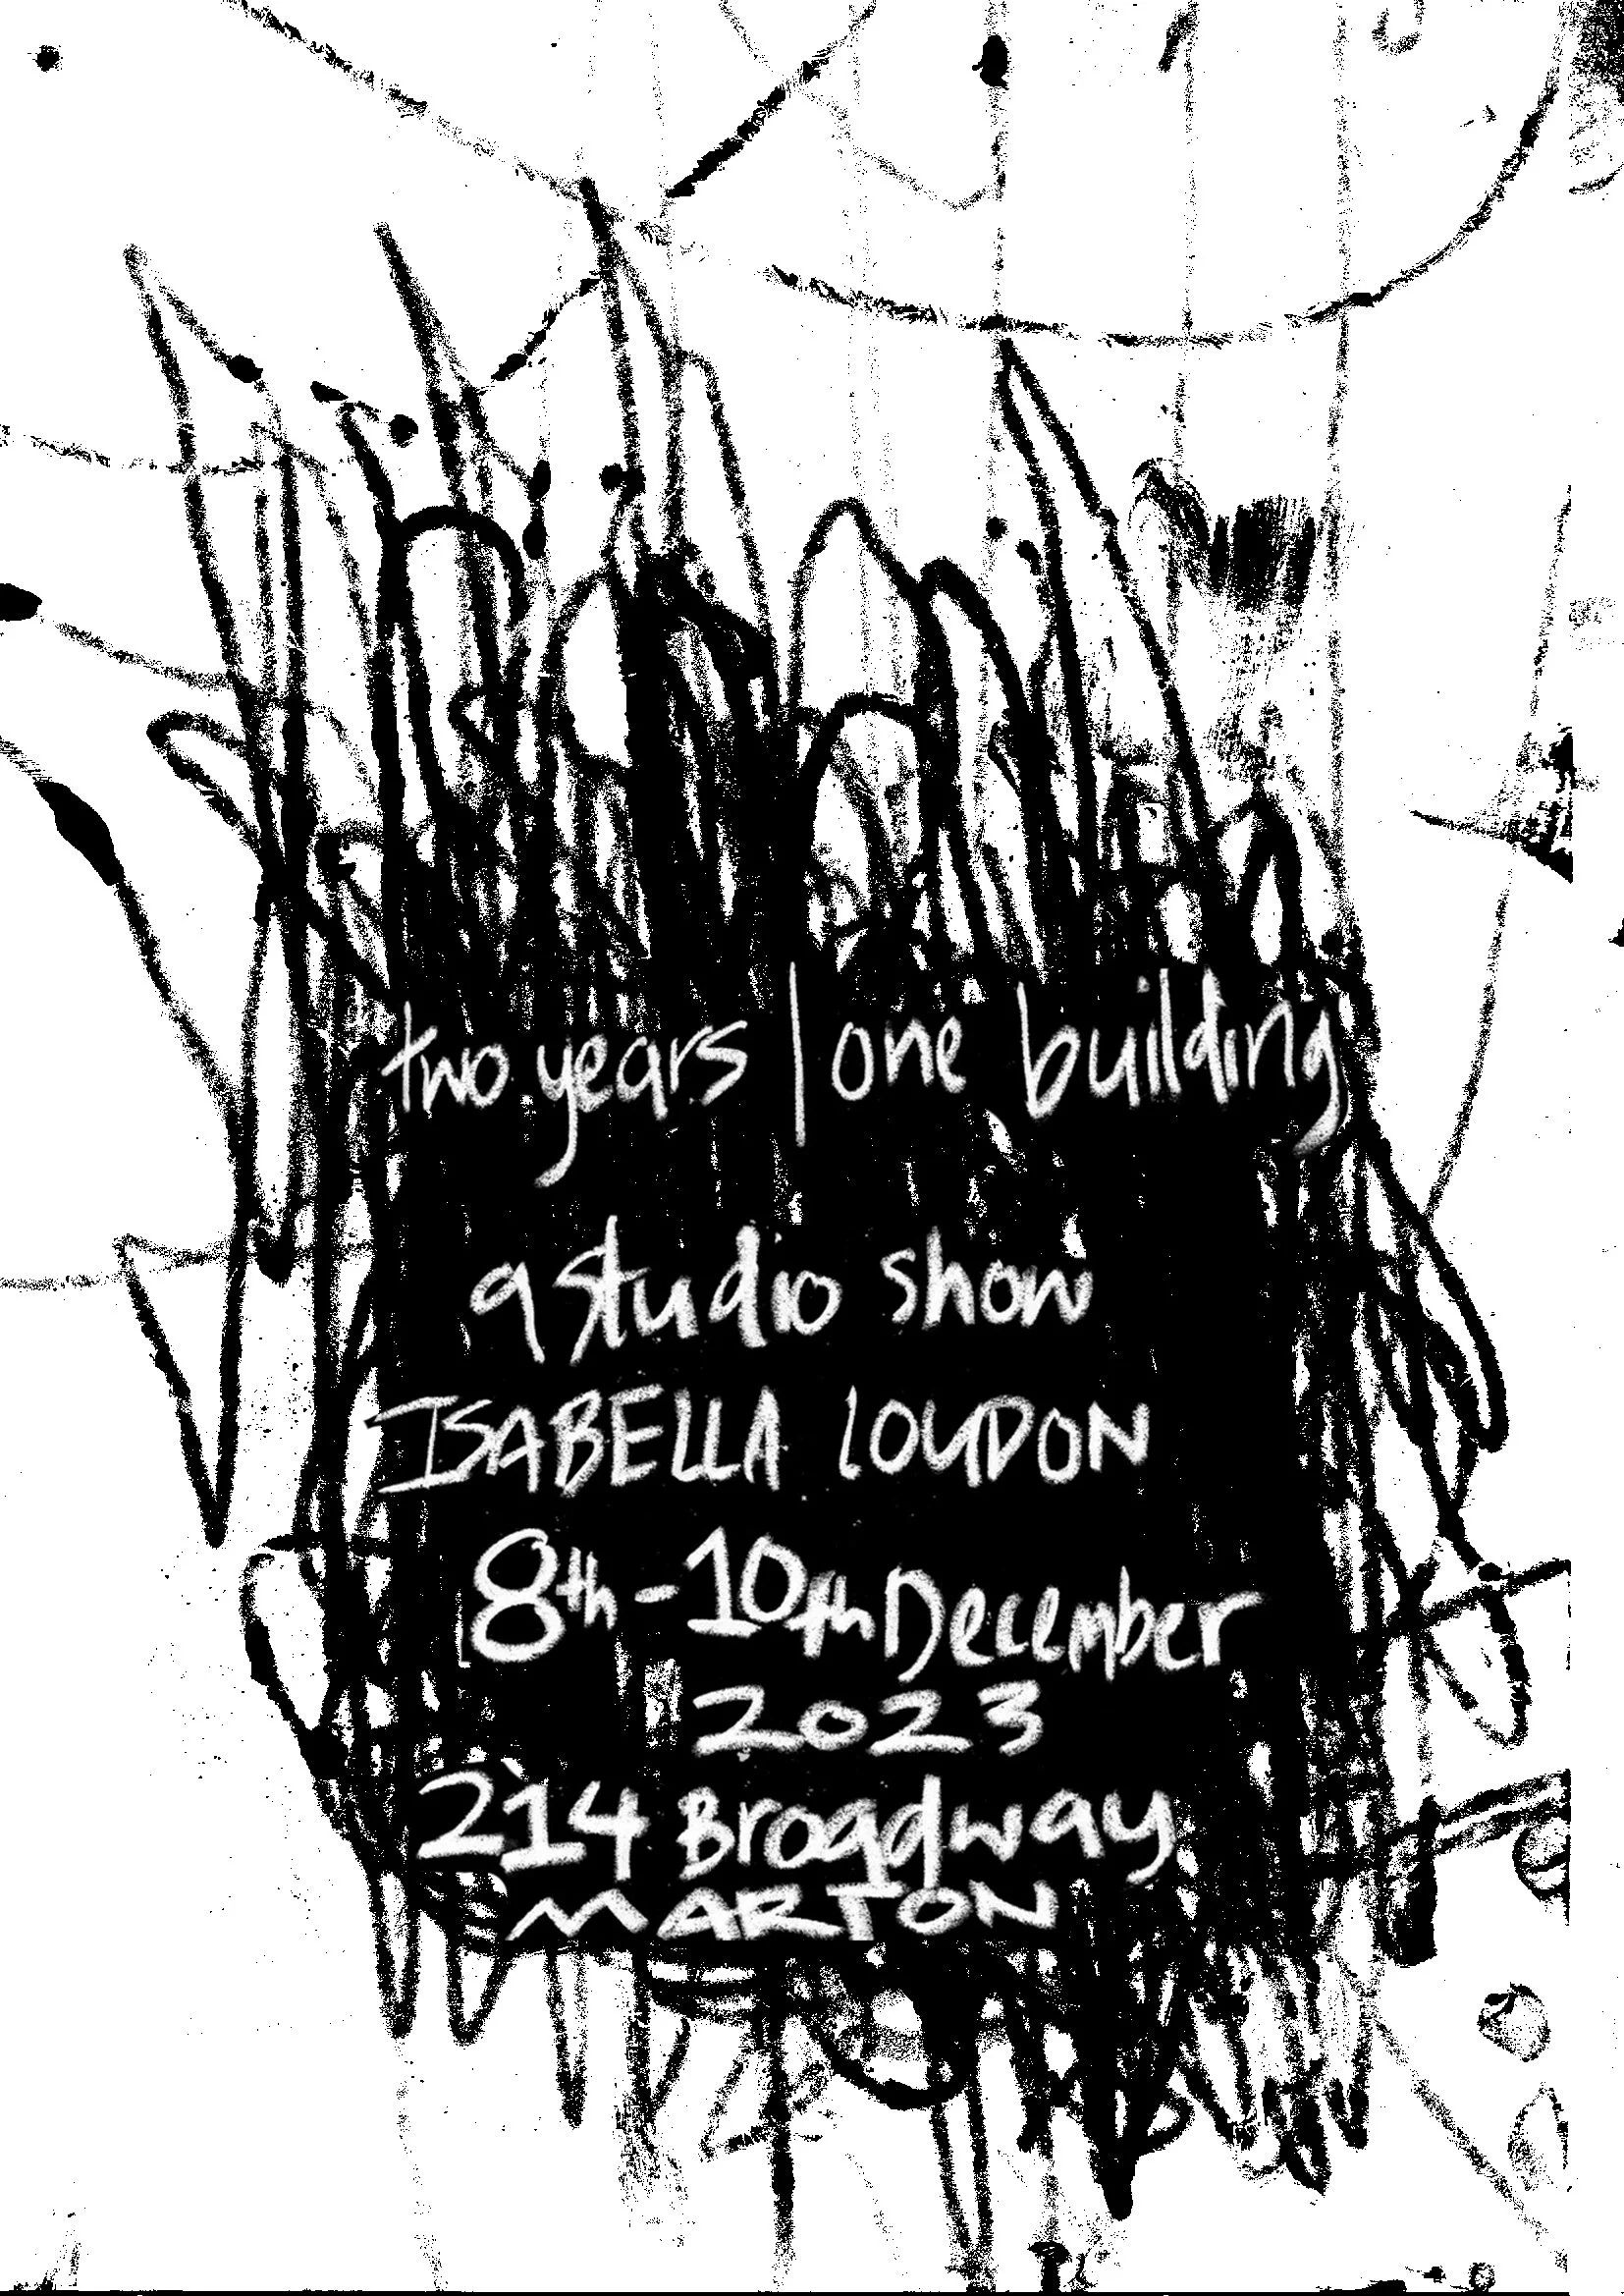 two years | one building
a studio show
ISABELLA LOUDON
8th - 10th December
2023
214 Broadway
MARTON